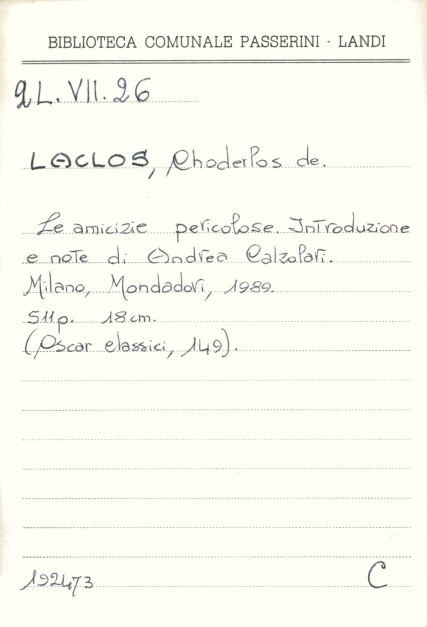 BIBLIOTECA COMUNALE PASSERINI - LANDI
2L.VII.26
LACLOS, Choderlos de.
Le amicizie pericolose. Introduzione
e note di Andrea Calzolari.
Milano, Mondadori, 1989.
511p. 18cm.
(Oscar classici, 149).
192473 C